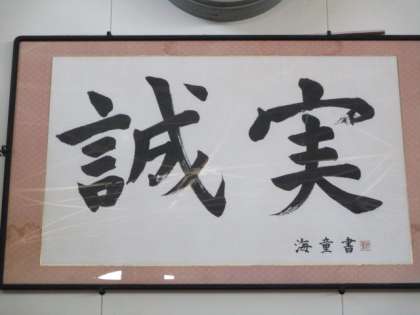 誠実
海童書